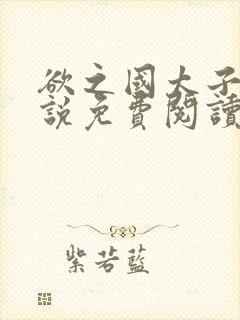 欲之國太子
說免費閱讀
紫若藍